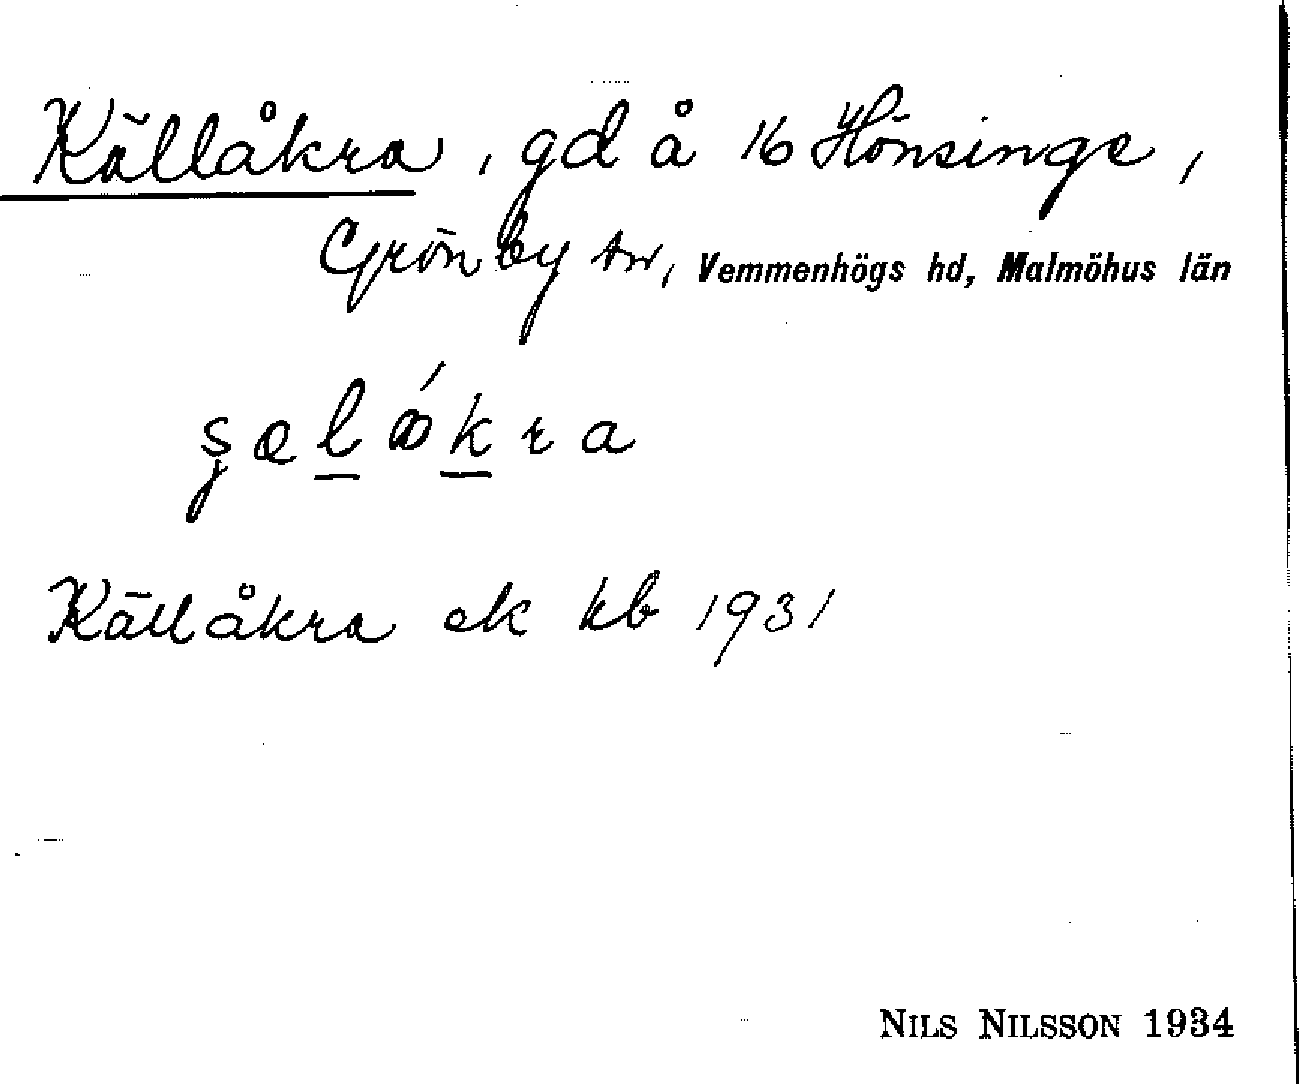 Källåkra, gd å 16 Hönsinge,
Grönby sn, Vemmenhögs hd, Malmöhus län
Källåkra ek kb 1931
NILS NILSSON 1934